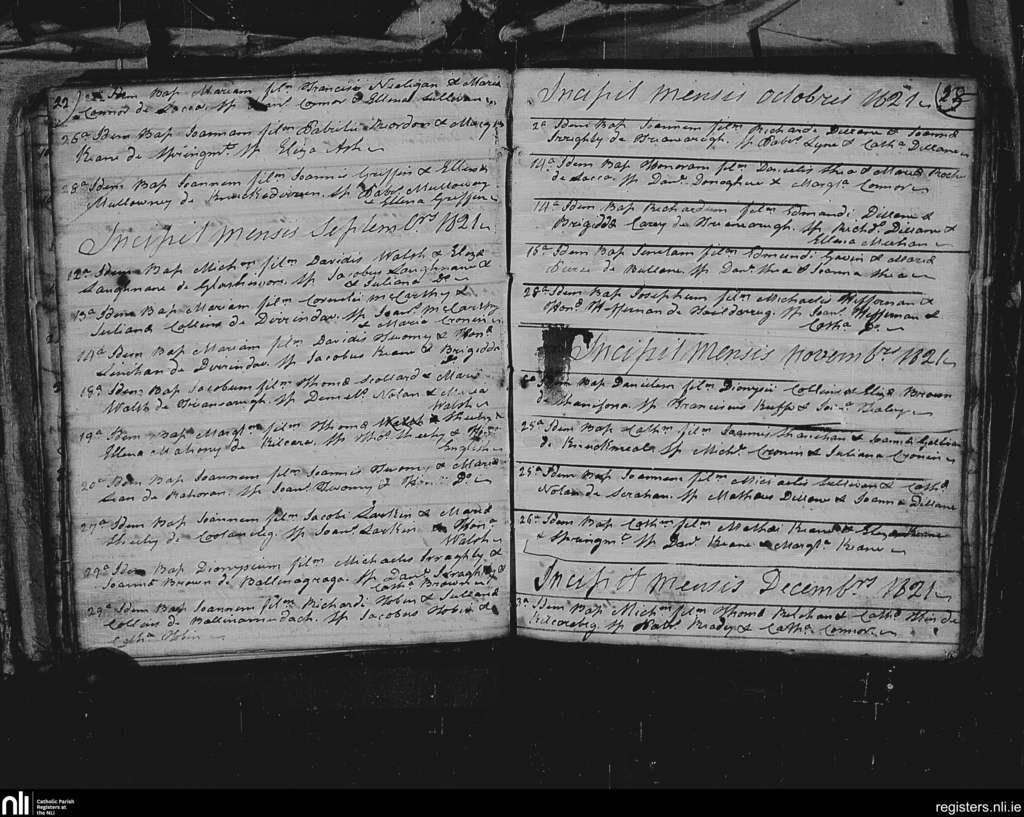 22) Idem Bap Mariam film Francisci Neeligan & Maria
Connor de Lacca. Sp Connor & Ellena Sullivan
25a Idem Bap Joannam film Patritii Reordon & Marg
Keane de Springmt. Sp Eliza Ash
28a Idem Bap Joannem film Joannis Griffin & Ellena
Mullowney de Knockadireen. Sp Patr Mullowney
& Ellena Griffin
Incipit Mensis Septembrs 1821
12a Idem Bap Michm film Davidis Walsh & Eliza
Laughnane de Glashinoon. Sp Jacobus Laughnane &
Juliana Do
13a Idem Bap Mariam film Cornelii McCarthy &
Juliana Collens de Derrinda. Sp Joans McCarthy
& Maria Cronin
14a Idem Bap Mariam film Davidis Twomy & Hona
Linehan de Derrinda. Sp Jacobus Keane & Brigidda
Do
18a Idem Bap Jacobum film Thoma Scollard & Maria
Walsh de Trienearagh. Sp Denis Nolan & Maria
Walsh
19a Idem Bap Margtm filiam Thoma Sheehy &
Ellena Mahony de Kilcara. Sp Thos Sheehy & Hona
English
20a Idem Bap Joannem film Joannis Twomy & Maria
Lean de Rahoran. Sp Joans Twomy & Hona Do
27a Idem Bap Joannem film Jacobi Larkin & Maria
Sheehy de Coolaneleg. Sp Joans Larkin & Hona
Walsh
29a Idem Bap Dionysium film Michaelis Iraghty &
Joanna Brown de Ballinagraga. Sp Danl Iraghty &
Catha Brown
29a Idem Bap Joannem film Richardi Hobin & Juliana
Collens de Sp Jacobus Hobin &
Catha Hobin
Incipit Mensis Octobris 1821 (23
2a Idem Bap Joannem film Richardi Dillane & Joanna
de Trienearagh. Sp Patrs Lyne & Catha Dillane
14a Idem Bap Honoram film Danielis Shea & Maria Roche
de Lacca. Sp Danl Donoghue & Margta Connor
14a Idem Bap Richardum film Edmundi Dillane &
Brigidda Carey de Trienearagh. Sp Richd Dillane &
Ellena Meehan
18a Idem Bap film Edmundi Gavin & Maria
Pierce de Bullane. Sp Danl Shea & Joanna Shea
28a Idem Bap Josephum film Michaelis Heffernan &
Hona Heffernan de Sp Joans Heffernan &
Catha Do
Incipit Mensis Novembrs 1821
Idem Bap Danielem film Dionysii Collins & Eliza Brown
de Shanafona. Sp Franciscus Ruff & Joana Daley
25a Idem Bap Catham filam Joannis Shanahan & Joanna Gallivan
de Sp Michl Cronin & Juliana Cronin
25a Idem Bap Joannem film Michaelis Sullivan & Catha
Nolan de Scrahan. Sp Matheus Dillane & Joanna Dillane
26a Idem Bap Catham filam Mathei Keane & Eliza Keane
Springmt Sp Danl Keane & Margta Keane
Incipit Mensis Decembrs 1821
3a Idem Bap Michm film Thoma Relehan & Catha de
Kilcarabeg. Sp Patrs Brady & Catha Connor
nli
Catholic Parish
Registers at
the NLI
registers.nli.ie